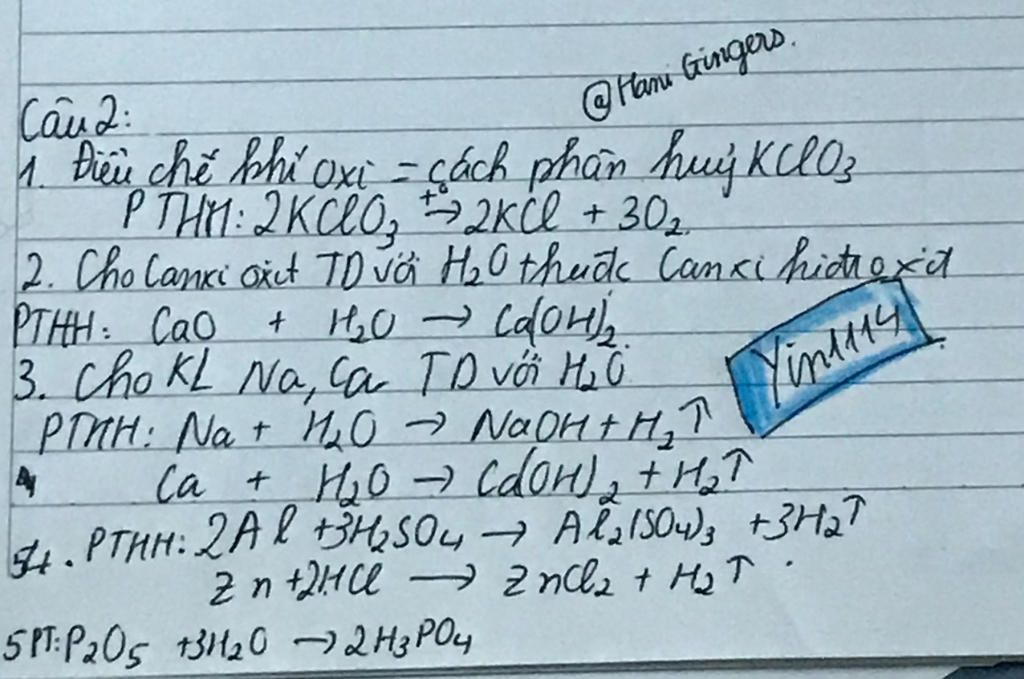 @Hani Gingers.
Câu 2:
1. Điều chế khí oxi = cách phân huỷ KClO3
PTHH: 2KClO3 t°→ 2KCl + 3O2.
2. Cho Canxi oxit TD với H2O thuđc Canxi hiđroxit
PTHH: CaO + H2O → Ca(OH)2.
3. Cho KL Na, Ca TD với H2O
Yin1114
PTHH: Na + H2O → NaOH + H2↑
Ca + H2O → Ca(OH)2 + H2↑
4. PTHH: 2Al + 3H2SO4 → Al2(SO4)3 + 3H2↑
Zn + 2HCl → ZnCl2 + H2↑.
5 PT: P2O5 + 3H2O → 2H3PO4